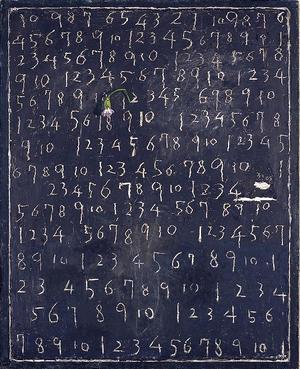 10 9 8 7 6 5 4 3 2 1 10 9 8 7 6
4 5 6 7 8 9 10 1 2 3 4 5 6 7 8 9
2 3 4 5 6 7 8 9 10 1 2 3 4 5 6
9 10 1 2 3 4 5 6 7 8 9 10 1 2 3 4
5 6 7 8 9 1 2 3 4 5 6 9 8 9 10
1 2 3 4 5 6 7 8 9 10 1 2 3 4 5 6 7
9 10 1 2 3 4 5 6 7 8 9 10 1 2
6 7 8 9 10 1 2 3 4 5 6 7 8 9 10
2 3 4 5 6 7 8 9 10 1 2 3 4
5 6 7 8 9 10 1 2 3 4 5 6 7 8 9 10
1 2 3 4 5 6 7 8 9 10 1 2 3 4 5
8 9 10 1 2 3 4 5 6 7 8 9 10 1
2 3 4 5 6 7 8 9 10 1 2 3 4
5 6 7 8 9 10 1 2 3 4 5 6
7 8 9 10 1 2 3 4 5 6 7 8 9 10